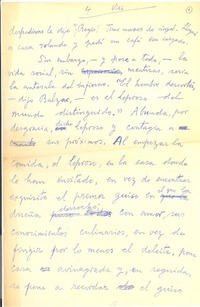 4
despedirme le dijo
a casa volando y pedí un café con
Sin embargo, – y pese a todo, – la
vida social, sin mentiras, sería
la antesala del infierno. "El hombre
– dijo Balzac, – es el leproso del
mundo distinguido". Abunda, por
desgracia, leproso y contagia a
sus próximos. Al empezar la
comida, el leproso, en la casa donde
le han invitado, en vez de encontrar
exquisito el primer guiso en que la
dueña con amor, sus
conocimientos culinarios, en vez de
fingir por lo menos el deleite, pone
cara avinagrada y, en seguida,
se pone a recordar el guiso